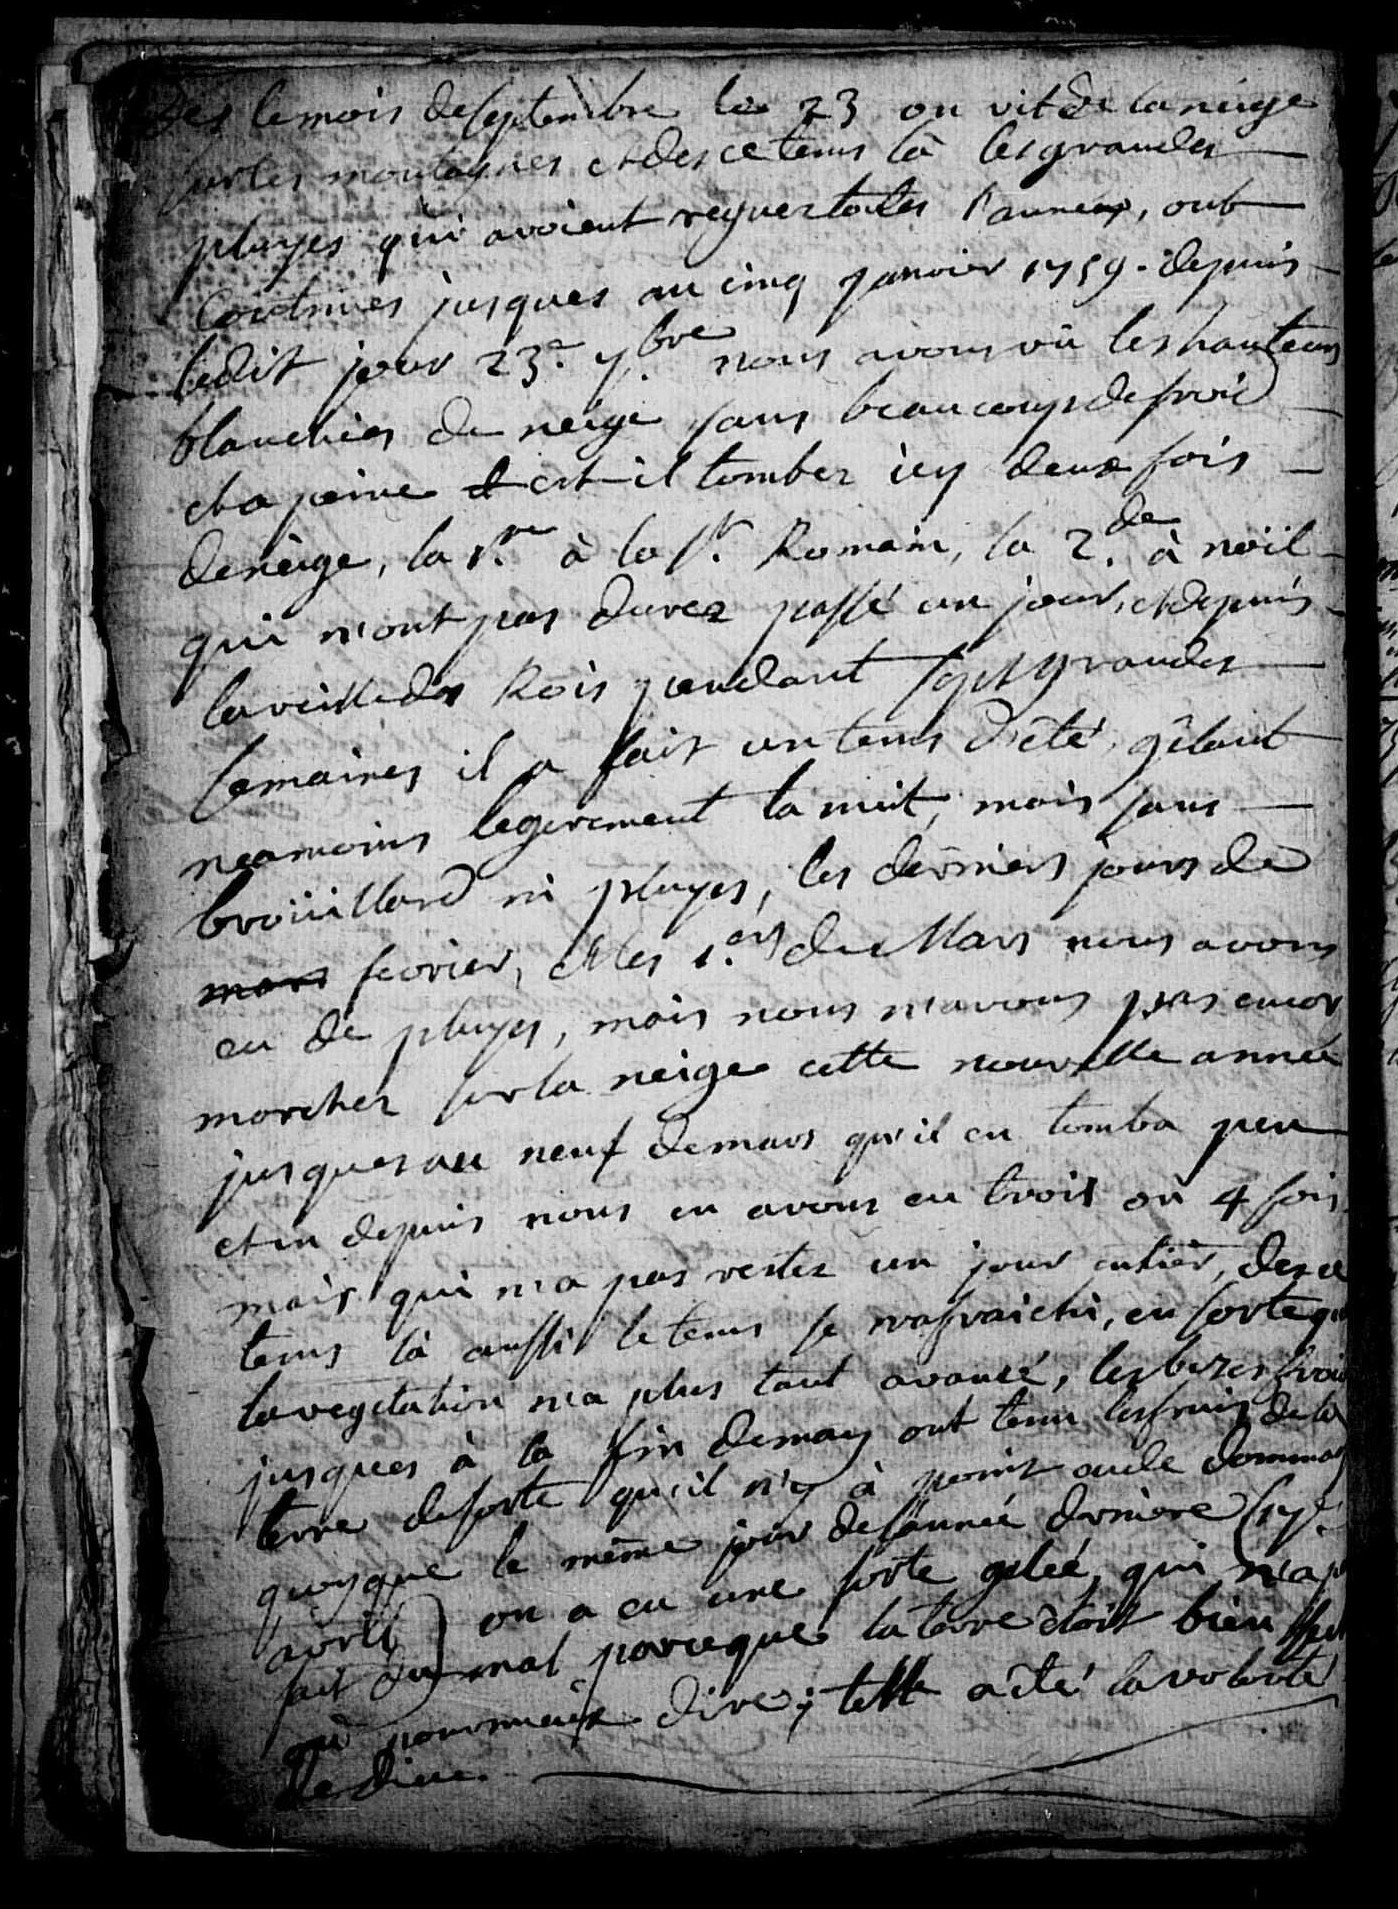 Des le mois de septembre le 23 on vit de la neige
sur les montagnes et des ce tems là les grandes
pluyes qui avoient regner toutes l'année, ont
continues jusques au cinq janvier 1759. depuis
ledit jour 23e 7bre nous avons vû les hauteurs
blanchies de neige sans beaucoups de froid
et a peine est-il tomber icy deux fois
de neige, la 1re à la St Romain, la 2de à noïl
qui n'ont pas durez passé un jour, et depuis
la veille des Rois pendant sept grandes
semaines il a fait un tems d'eté, gêlant
neamoins legerement la nuit, mais sans
broüillard ni pluyes, les derniers jours de
mars fevrier, et les 1.ers de Mars nous avons
eu de pluyes, mais nous n'avons pas encor
marcher sur la neige cette nouvelle année
jusques au neuf de mars qu'il en tomba peu
et en depuis nous en avons eu trois où 4 fois
mais qui n'a pas rester un jour entier, des ce
tems là aussi le tems se rafraichi, en sorte que
la vegetation n'a plus tant avancé, les bizes
jusques à la fin de may ont tenu les fruis de la
terre de sorte qu'il n'y à point eu de
quoyque le même jour de l'année derniere (17e
avril) on a eu une forte gelée, qui n'a
fait du mal parceque la terre étoit bien
où pour mieux dire; telle a été la volonté
de dieu.